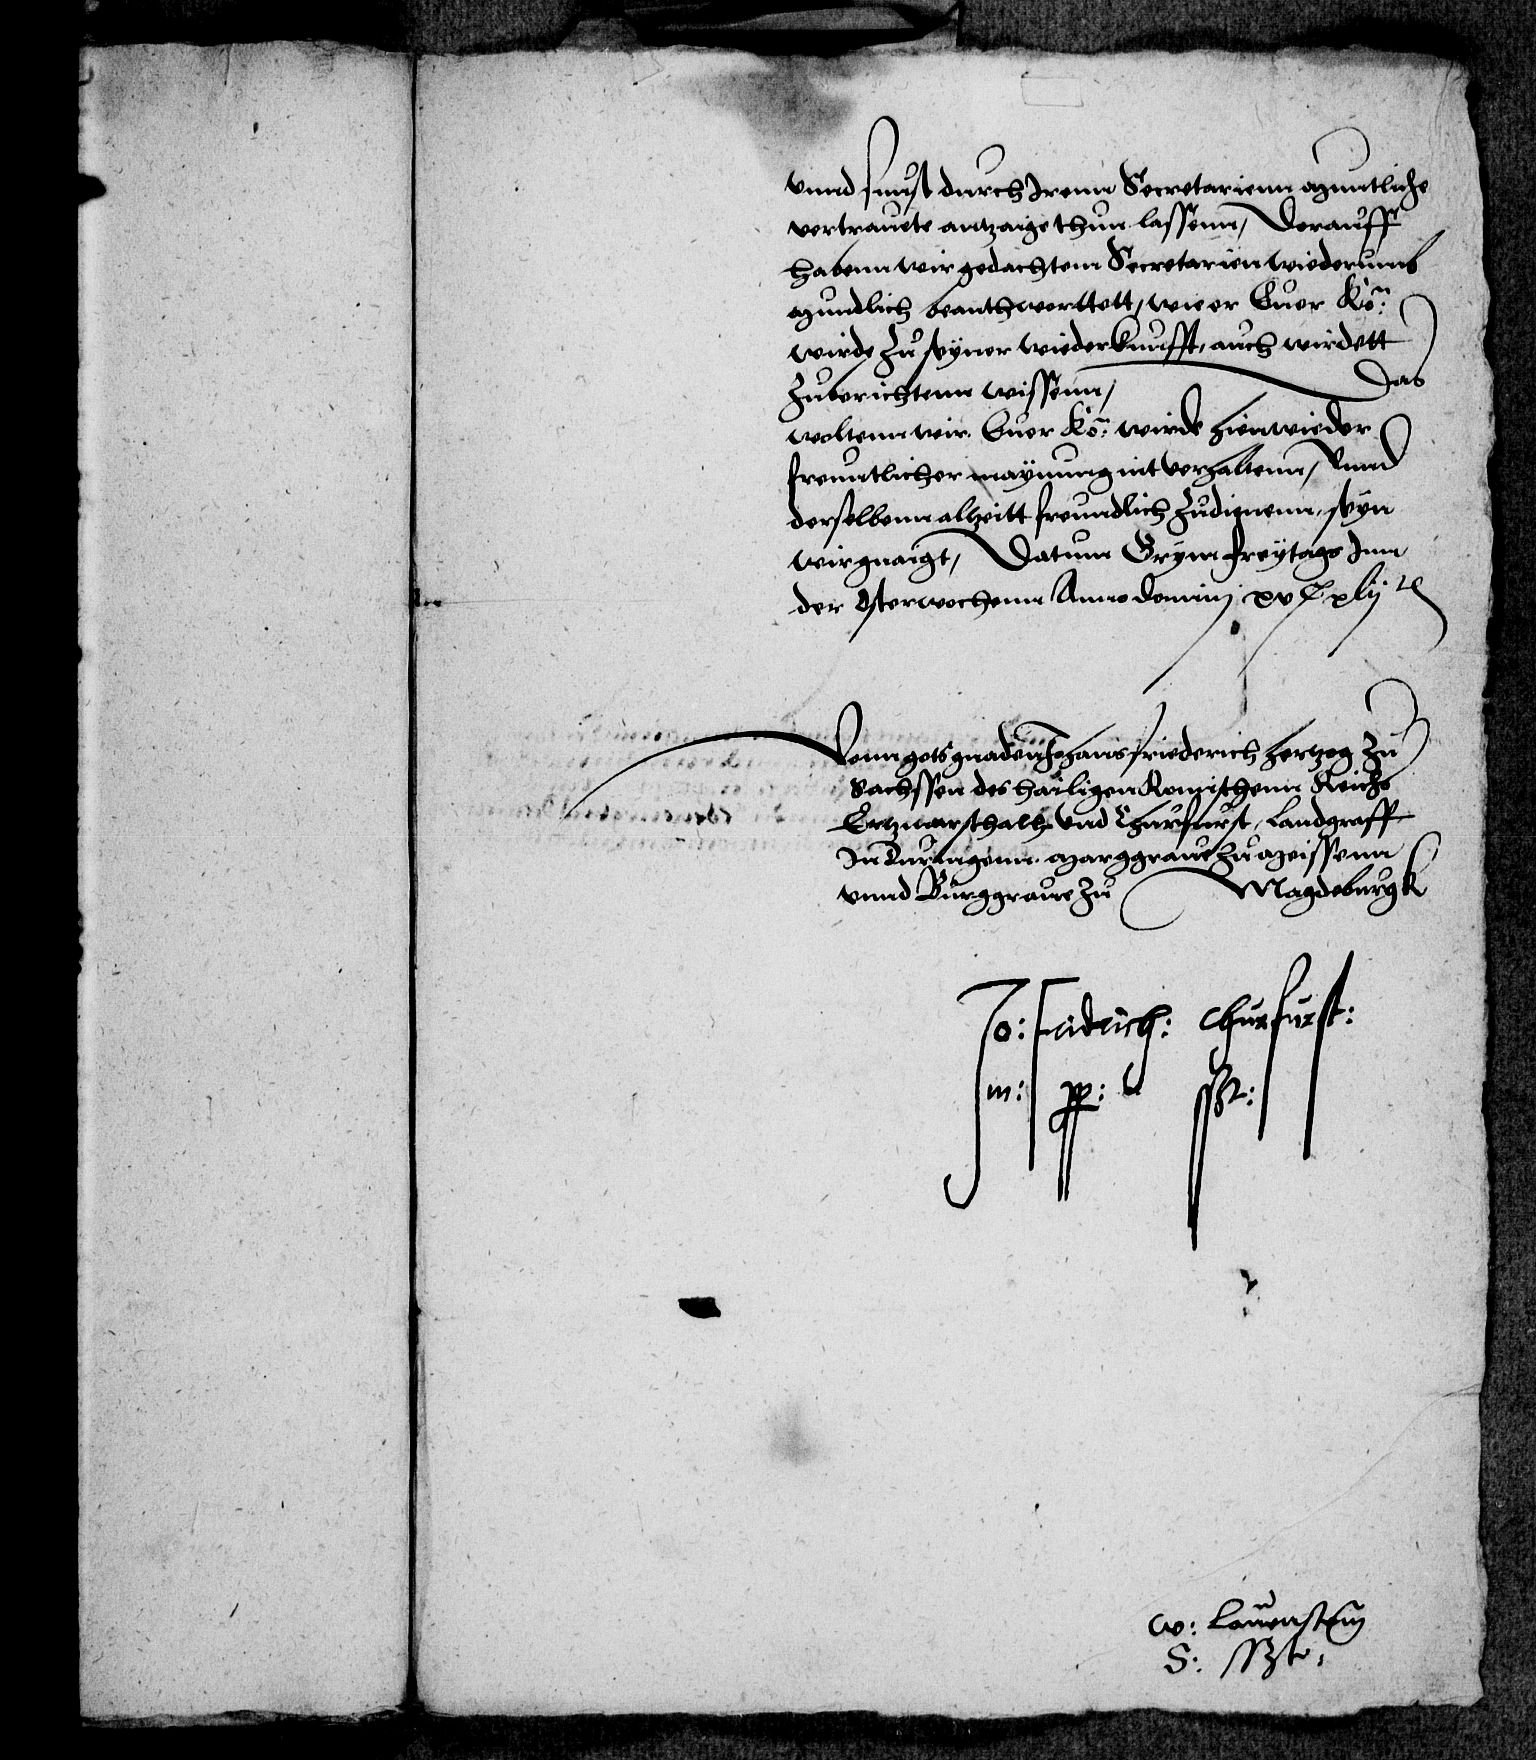 vnnd sunst durch Irenn Secretarienn muntliche
vertrauete antzaige thun lassenn, Dorauff
habenn wir gedachtem Secretarien wiederumb
mundlich beanthworttett, wie er Euer Kö:
wirde zu seyner wiederkunfft, auch wirdett
zuberichtenn wissenn, Das
woltenn wir Euer Kö: wirde hienwieder
freuntlicher maynung nit verhaltenn, Vnnd
derselbenn alzeitt freundlich zudienenn, seyn
wir gnaigt, Datum Grym freytags Inn
der Osterwochenn Anno domini xvᶜ xlij
Vonn gots gnaden Johans friederich hertzog zu
Sachssen des hailigen Romischenn Reichs
Ertzmarschalh vnd Churfurst, Landgraff
In Duringenn marggraue zu Meissenn
vnnd Burggraue zu Magdeburgk
Jo: fridrich: churfurst:
m: pp: sszt:
w: Lauenstein
S: sszt: